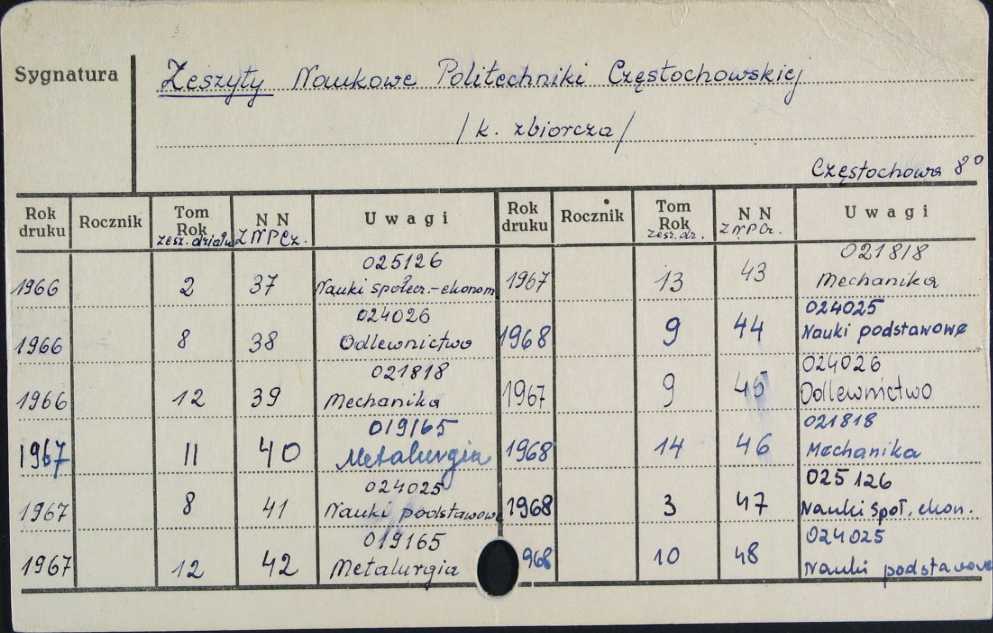 Sygnatura
Zeszyty Naukowe Politechniki Częstochowskiej
/k. zbiorcza/
Częstochowa 8°
Rok druku Rocznik Tom Rok zesz. działu N N Z N P Cz. Uwagi Rok druku Rocznik Tom Rok zesz. dz. N N Z N P Cz. Uwagi
025126 021818
1966 2 37 Nauki społecz.-ekonom 1967 13 43 Mechanika
024026 024025
1966 8 38 Odlewnictwo 1968 9 44 Nauki podstawowe
021818 024026
1966 12 39 Mechanika 1967 9 45 Odlewnictwo
019165 021818
1967 11 40 Metalurgia 1968 14 46 Mechanika
024025 025126
1967 8 41 Nauki podstawowe 1968 3 47 Nauki społ. ekon.
019165 024025
1967 12 42 Metalurgia 968 10 48 Nauki podstawowe